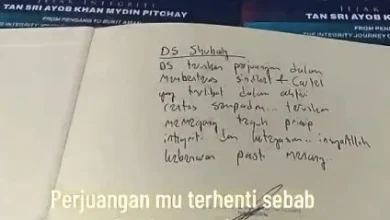 JEJAK INTEGRITI
TAN SRI AYOB KHAN MYDIN PITCHAY
FROM PENGANG TO BUKIT AMAN
THE INTEGRITY JOURNEY
JEJAK
TAN SRI AYOB KHAN MYDIN
FROM PENGANG
THE INTEGRITY JOURNEY O
DS Shuhaily
DS teruskan perjuangan dalam
membanteras sindiket & Cartel
yang terlibat dalam aktiviti
rentas sempadan... teruskan
memegang teguh prinsip
integriti dan ketegasan... insyaAllah
kebenaran pasti menang.
Perjuangan mu terhenti sebab